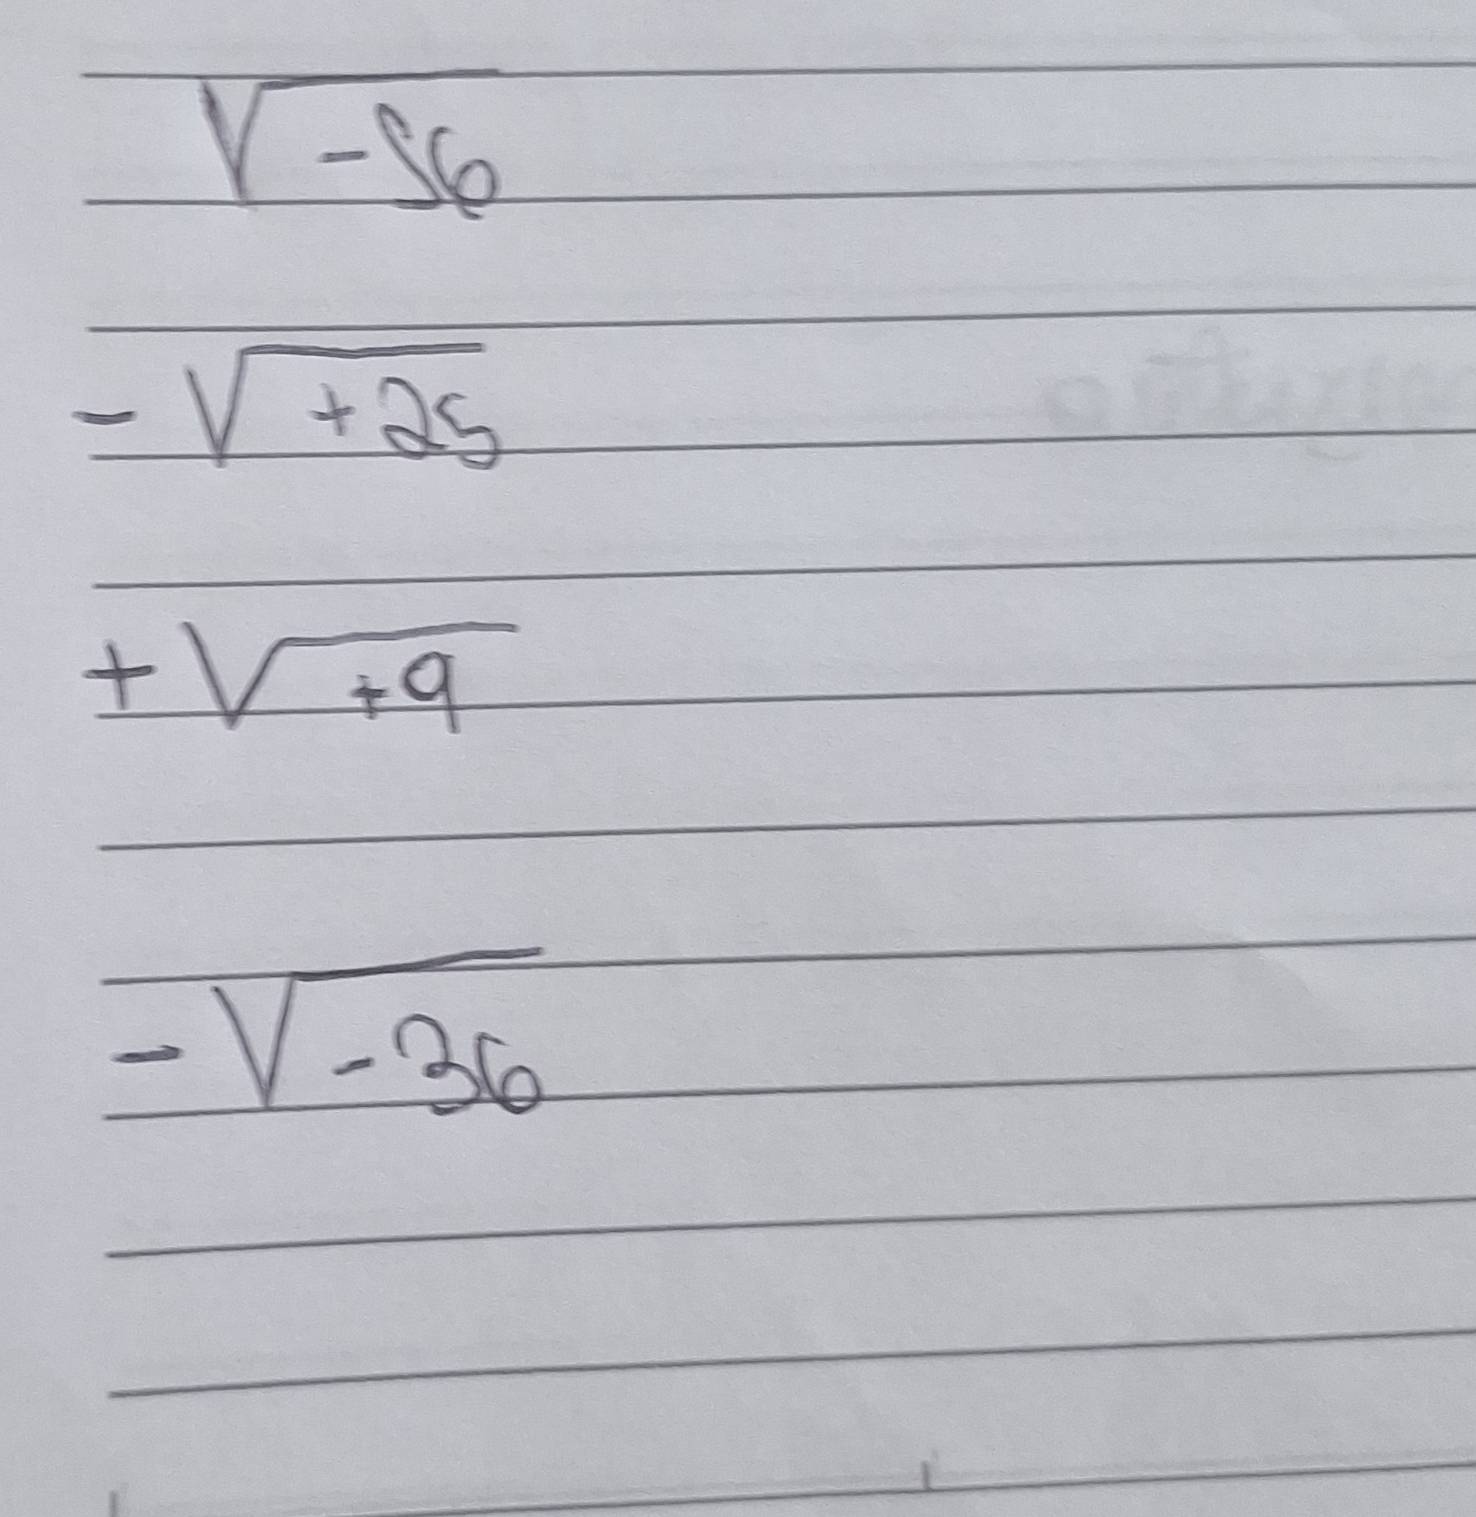 √-16
-√+25
+√+9
-√-36